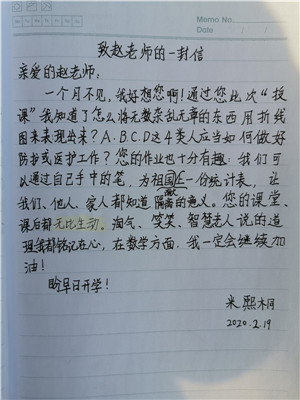 Memo No.
Mo Tu We Th Fr Sa Su
Date
致赵老师的一封信
亲爱的赵老师：
一个月不见，我好想您啊！通过您此次“授
课”我知道了怎么将无数杂乱无章的东西用折线
图来表现出来？A.B.C.D这4类人应当如何做好
防护或医护工作？您的作业也十分有趣：我们可
以通过自己手中的笔，为祖国献一份统计表，让
我们、他人、家人都知道隔离的意义。您的课堂、
课后都无比生动。淘气、笑笑、智慧老人说的道
理我都铭记在心，在数学方面，我一定会继续加
油！
盼早日开学！
米熙桐
2020.2.19